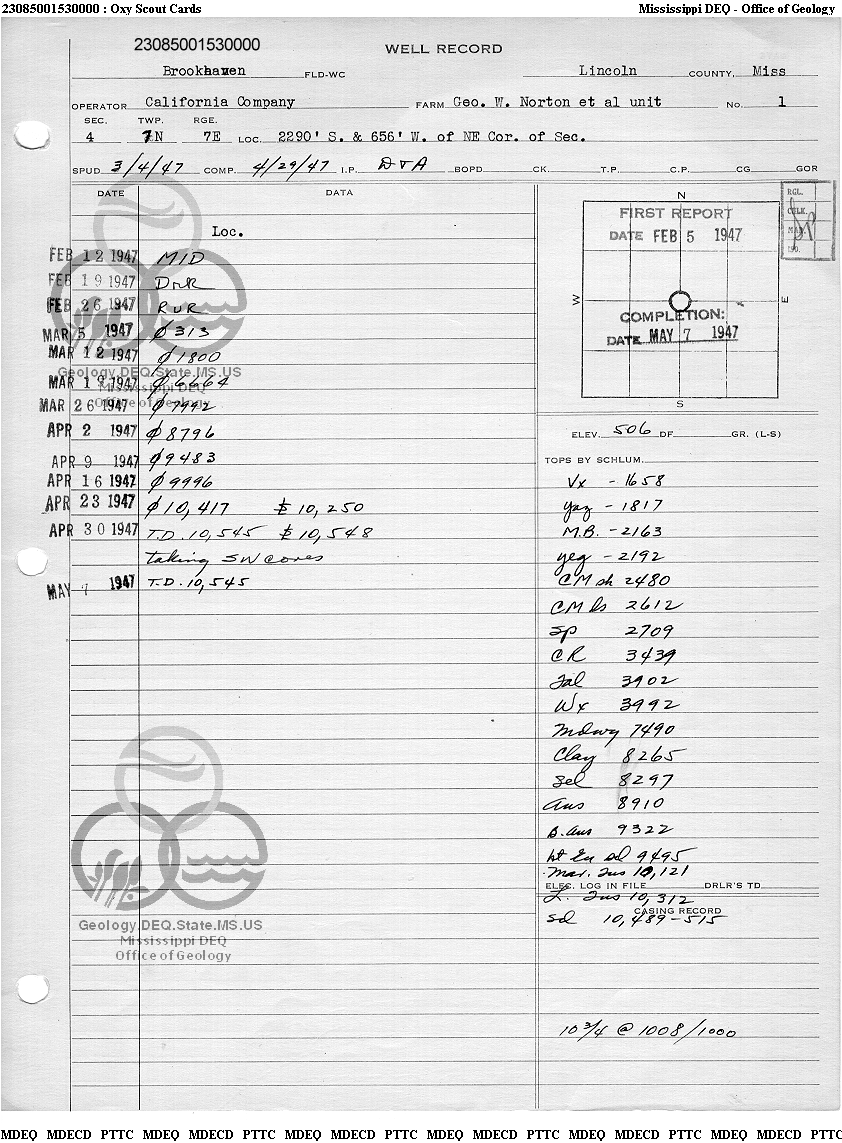 23085001530000 : Oxy Scout Cards Mississippi DEQ - Office of Geology
23085001530000
WELL RECORD
Brookhaven FLD-WC Lincoln COUNTY, Miss
OPERATOR California Company FARM Geo. W. Norton et al unit No. 1
SEC. TWP. RGE.
4 7N 7E LOC. 2290' S. & 656' W. of NE Cor. of Sec.
SPUD 3/4/47 COMP. 4/29/47 I.P. D & A BOPD CK. T.P. C.P. CG GOR
DATE DATA
Loc.
FEB 12 1947 MID
FEB 19 1947 DrR
FEB 26 1947 RUR
MAR 5 1947 Ø 313
MAR 12 1947 Ø 1800
MAR 19 1947 Ø 6664
MAR 26 1947 Ø 7992
APR 2 1947 Ø 8796
APR 9 1947 Ø 9483
APR 16 1947 Ø 9996
APR 23 1947 Ø 10,417 10,250
APR 30 1947 T.D. 10,545 10,548
taking SW cores
MAY 7 1947 T.D. 10,545
Geology.DEQ.State.MS.US
Mississippi DEQ
Office of Geology
Geology.DEQ.State.MS.US
Mississippi DEQ
Office of Geology
N
W
E
S
FIRST REPORT
DATE FEB 5 1947
COMPLETION:
DATE MAY 7 1947
RGL.
CALK.
MAP
ELEV. 506 DF. GR. (L-S)
TOPS BY SCHLUM.
Vx - 1658
Yaz - 1817
M.B. - 2163
Yeg - 2192
CM sh 2480
CM ls 2612
Sp 2709
CR 3439
Tal 3902
Wx 3992
Mdwy 7490
Clay 8265
Sel 8297
Aus 8910
B. Aus 9322
Lt Eu sd 9495
Mar. Tus 10,121
ELEC. LOG IN FILE DRLR'S TD
L. Tus 10,312
CASING RECORD
Sd 10,489-515
10 3/4 @ 1008/1000
MDEQ MDECD PTTC MDEQ MDECD PTTC MDEQ MDECD PTTC MDEQ MDECD PTTC MDEQ MDECD PTTC MDEQ MDECD PTTC